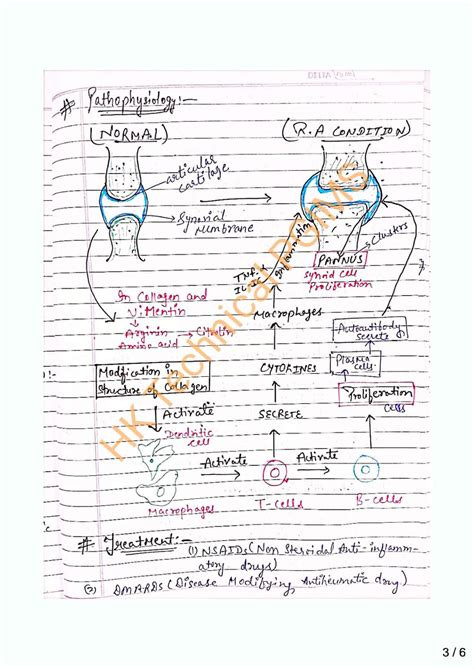 # Pathophysiology:-
(NORMAL)
(R.A CONDITION)
articular
cartilage
Synovial
Membrane
Clusters
PANNUS
Synoid cell
Proliferation
TNF-α
Inflammation
In Collagen and
Vimentin
Arginin → Citrulin
Amino acid
Macrophages
Autoantibody
secrete
Plasma
cells
Modification in
Structure of Collagen
CYTOKINES
Proliferation
cells
Activate
SECRETE
Dendritic
cell
Macrophages
Activate
T-cells
Activate
B-cells
# Treatment:-
(1) NSAIDs (Non Steroidal Anti-inflamm-
atory drugs)
(2) DMARDs (Disease Modifying Antiheumatic drug)
HK Technical PGIMS
3 / 6